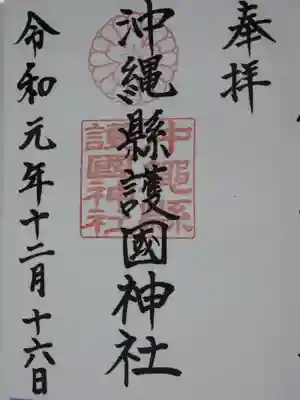 奉拝
沖縄縣護國神社
沖縄縣護國神社
令和元年十二月十六日